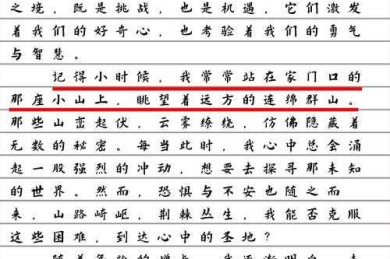 之境，既是挑战，也是机遇，它们激发
着我们的好奇心，也考验着我们的勇气
与智慧。
记得小时候，我常常站在家门口的
那座小山上，眺望着远方的连绵群山。
那些山峦起伏，云雾缭绕，仿佛隐藏着
无数的秘密。每当此时，我心中总会涌
起一股强烈的冲动，想要去探寻那未知
的世界。然而，恐惧与不安也随之而
来，山路崎岖，荆棘丛生，我能否克服
这些困难，到达心中的圣地？